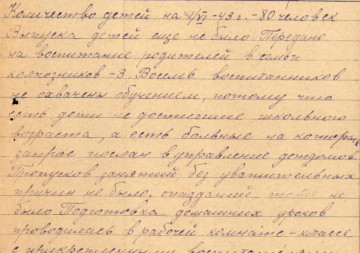 Количество детей на 1/VI-43 г. - 80 человек
Выпуска детей еще не было. Передано
на воспитание родителей в семьи
колхозников - 3. Восемь воспитанников
не охвачены обучением, потому что
есть дети не достигшие школьного
возраста, а есть больные на которых
запрос послан в управление детдомов.
Пропусков занятий без уважительных
причин не было, опозданий тоже не
было. Подготовка домашних уроков
проводилась в рабочей комнате-классе
с прикреплением